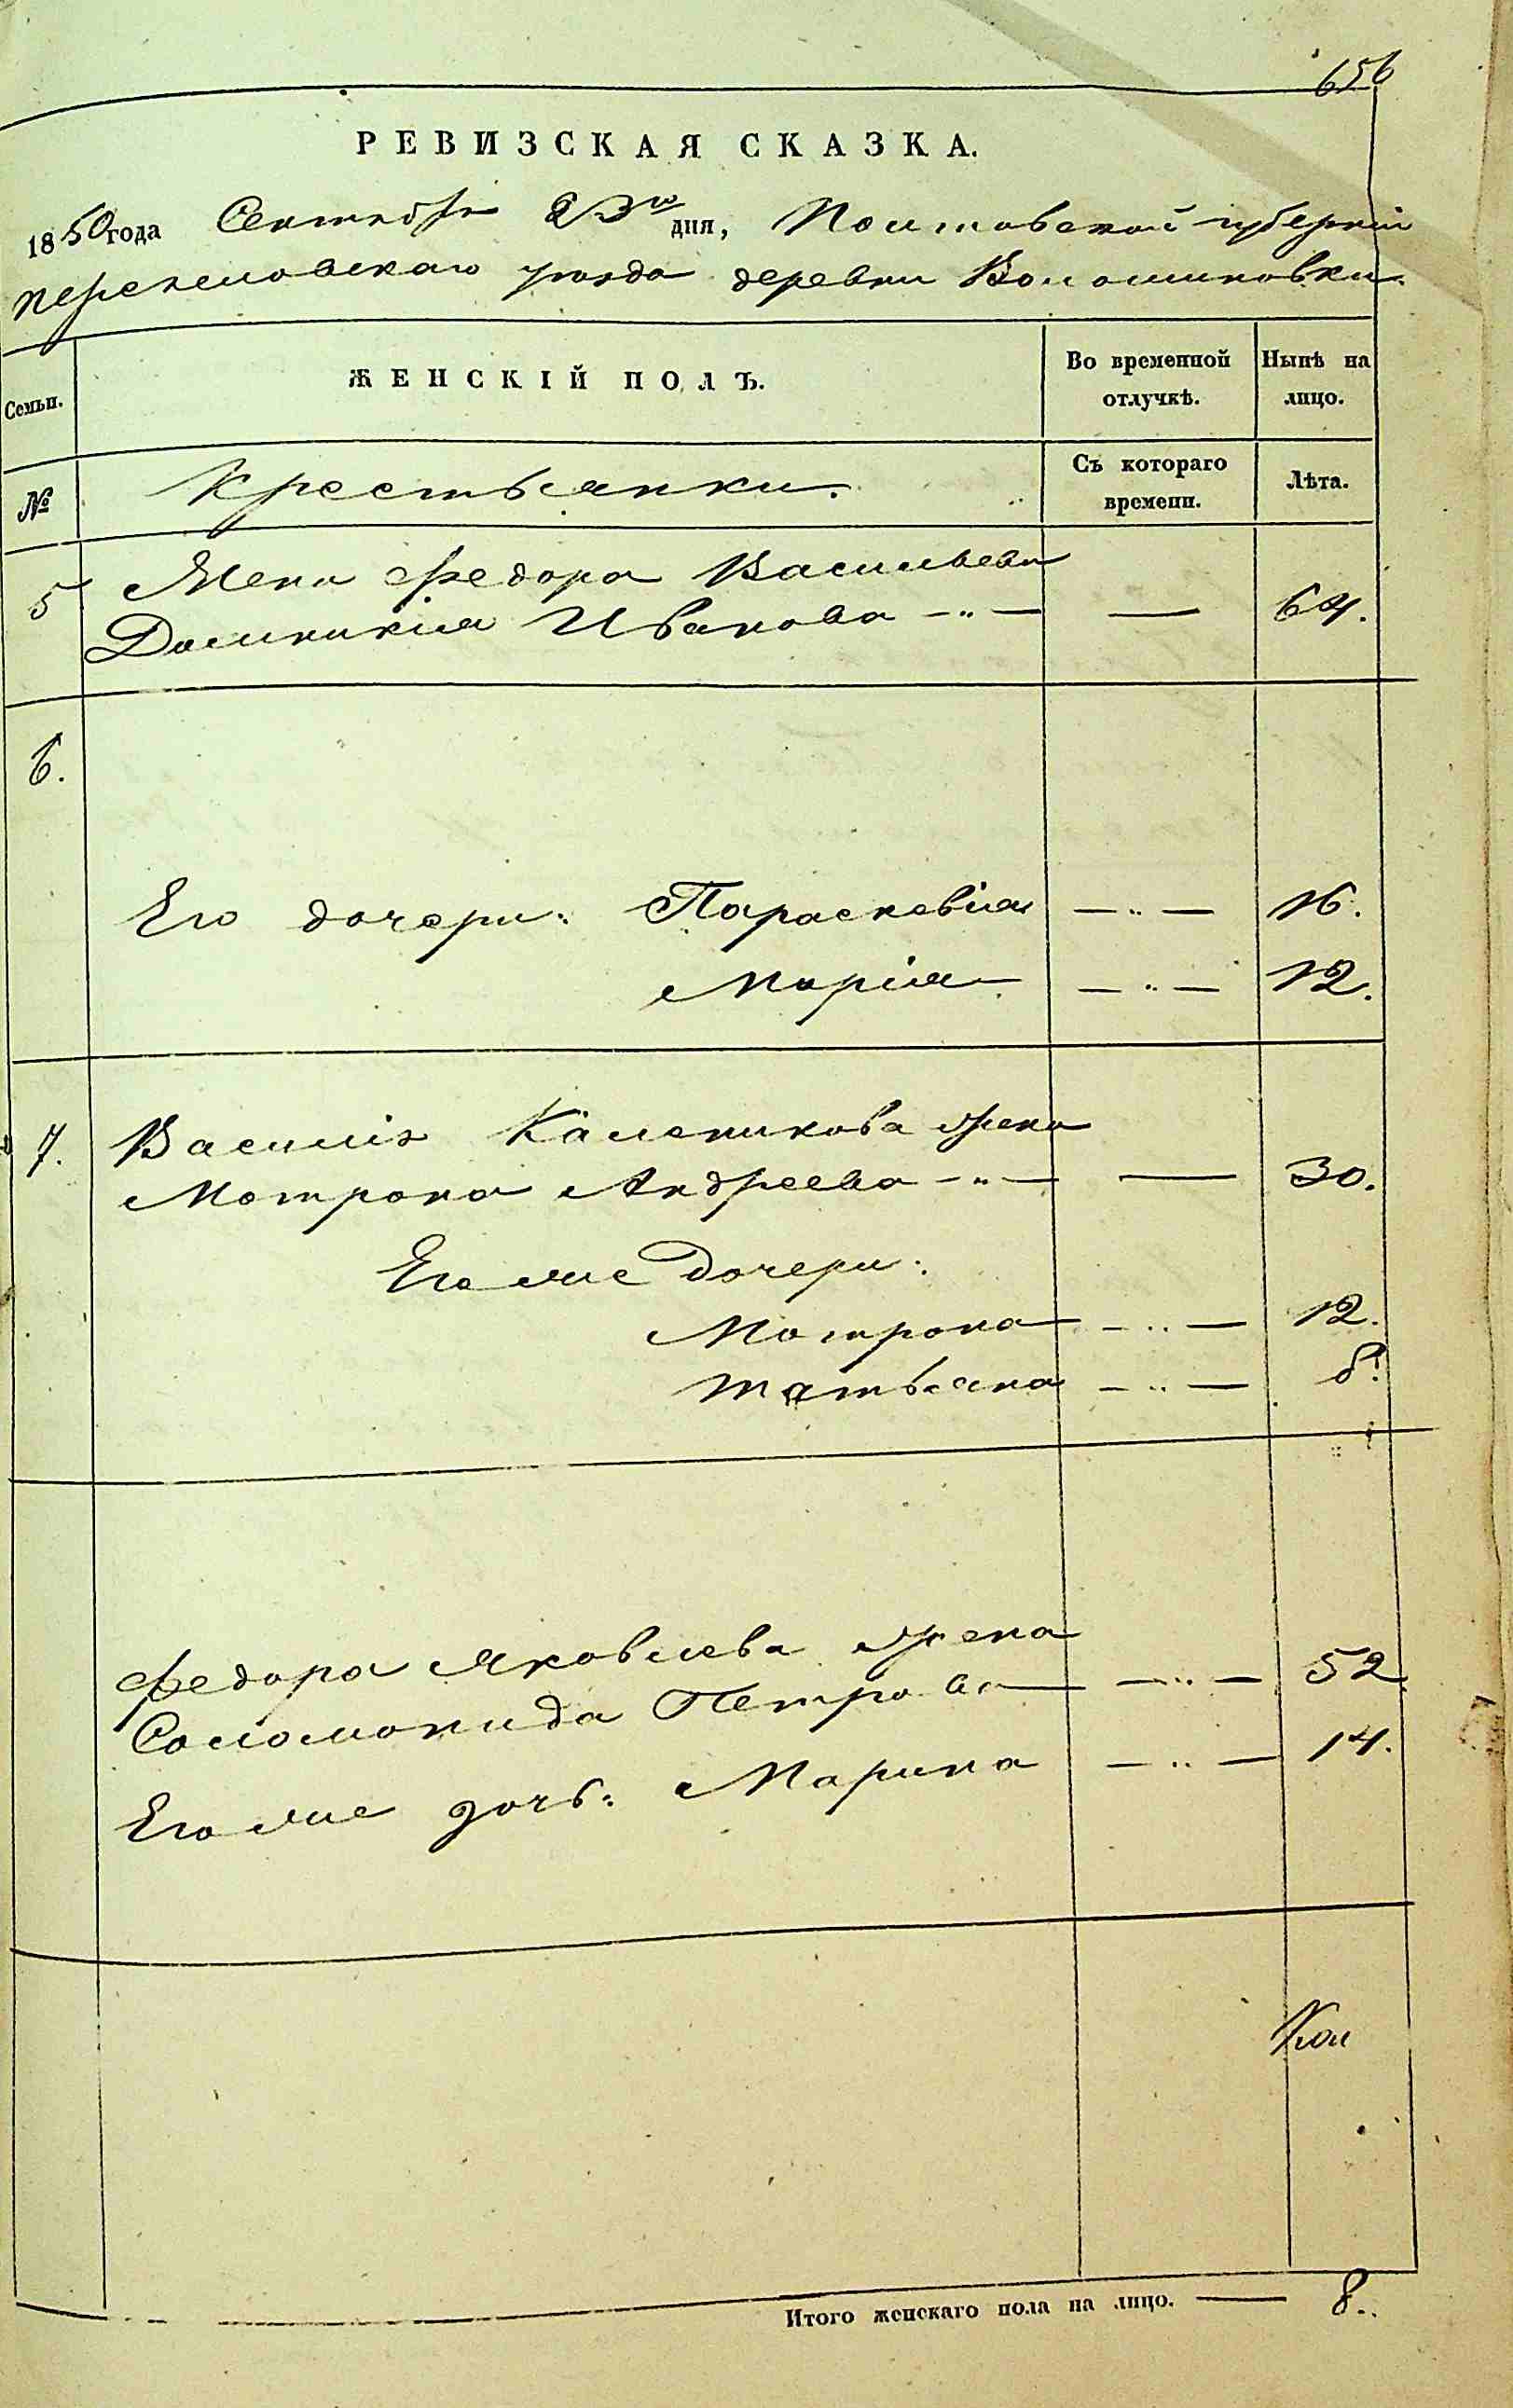 656
РЕВИЗСКАЯ СКАЗКА.
1850 года Сентября 23го дня, Полтавской губернiи
Переяславскаго уезда деревни Волошиновки.
Семьи.
ЖЕНСКІЙ ПОЛЪ.
Во временной
отлучкѣ.
Нынѣ на
лицо.
№
Крестьянки.
Съ котораго
времени.
Лѣта.
5 Жена Федора Васильева
Домникия Иванова — " — — 64.
6.
Его дочери: Параскевiя — " — 16.
Марiя — " — 12.
7. Василiя Каленикова жена
Мотрона Андреева — " — — 30.
Его же дочери:
Мотрона — " — 12.
Татьяна — " —
Федора Яковлева жена
Соломонида Петрова — " — 52
Его же дочь: Марина — " — 14.
Итого женскаго пола на лицо. — 8.